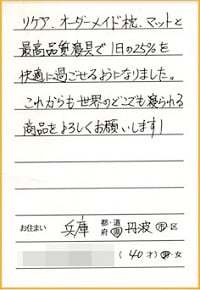 リケア、オーダーメイド枕、マットと
最高品質寝具で1日の25%を
快適に過ごせるようになりました。
これからも世界のどこでも寝られる
商品をよろしくお願いします!
お住まい 兵庫 都・道・府・県 丹波 市・区
(40才) 男・女